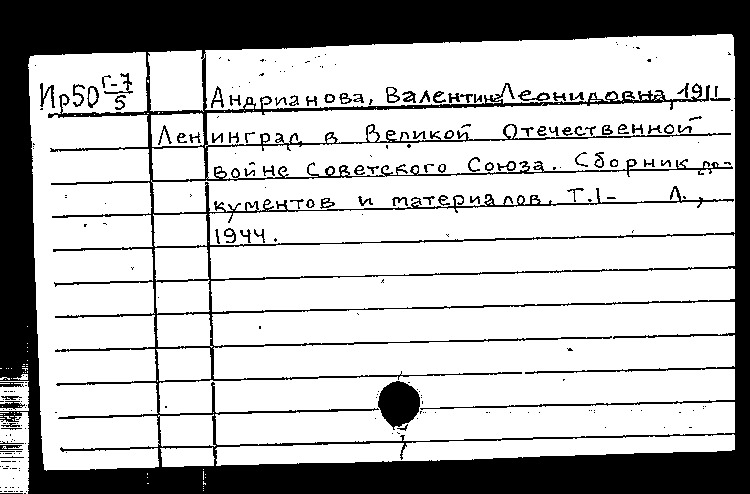 Ир50 Г-7/5
Андрианова, Валентина Леонидовна, 1911
Ленинград в Великой Отечественной
войне Советского Союза. Сборник до-
кументов и материалов. Т.1- Л.,
1944.